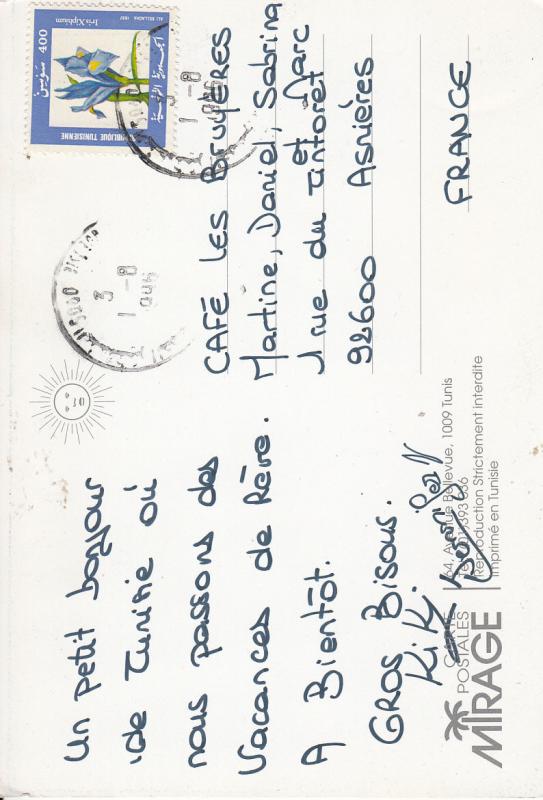 Un petit bonjour
de Tunisie où
nous passons des
Vacances de Rêve.
A Bientôt.
GROS Bisous.
Kiki
CAFÉ LES BRUYÈRES
Martine, Daniel, Sabrina
et Marc
1 rue du Tintoret
92600 Asnières
FRANCE
400
Iris Xiphium
ALI BELLAGHA 1997
RÉPUBLIQUE TUNISIENNE
الجمهورية التونسية
3
1 -8
CARTES
POSTALES
MIRAGE
64, Avenue Bellevue, 1009 Tunis
Reproduction Strictement interdite
Imprimé en Tunisie